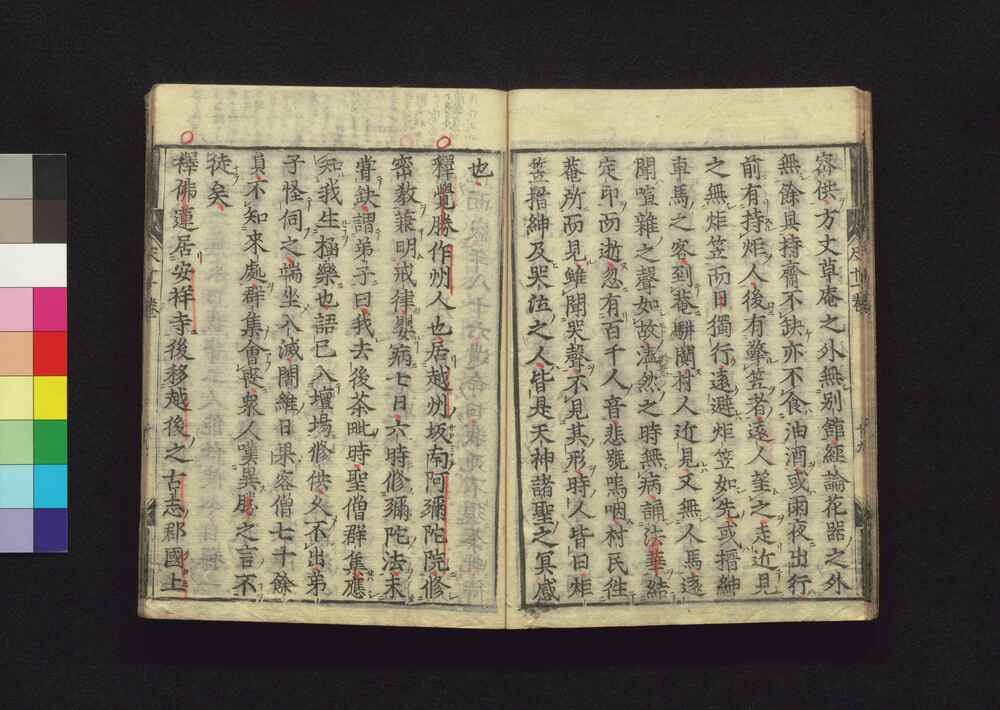 密供方丈草庵之外無別館經論花器之外
無餘具持齋不缺亦不食油酒或雨夜出行
前有持炬人後有擎笠者遠人望之走近見
之無炬笠而日獨行遠避炬笠如先或搢紳
車馬之客到菴駢闐村人近見又無人馬遠
聞喧雜之聲如故溘然之時無病誦法華結
定印而逝忽有百千人音悲號嗚咽村民徃
菴所而見雖聞哭聲不見其形時人皆曰炬
笠搢紳及哭泣之人皆是天神諸聖之冥感
也
釋覺勝作州人也居越州坂南阿彌陀院修
密敎兼明戒律嬰病七日六時修彌陀法未
嘗缺謂弟子曰我去後茶毗時聖僧群集應
知我生極樂也語已入壇場修供久不出弟
子怪伺之端坐入滅闍維日果客僧七十餘
員不知來處群集會喪衆人嘆異勝之言不
徒矣
釋佛蓮居安祥寺後移越後之古志郡國上